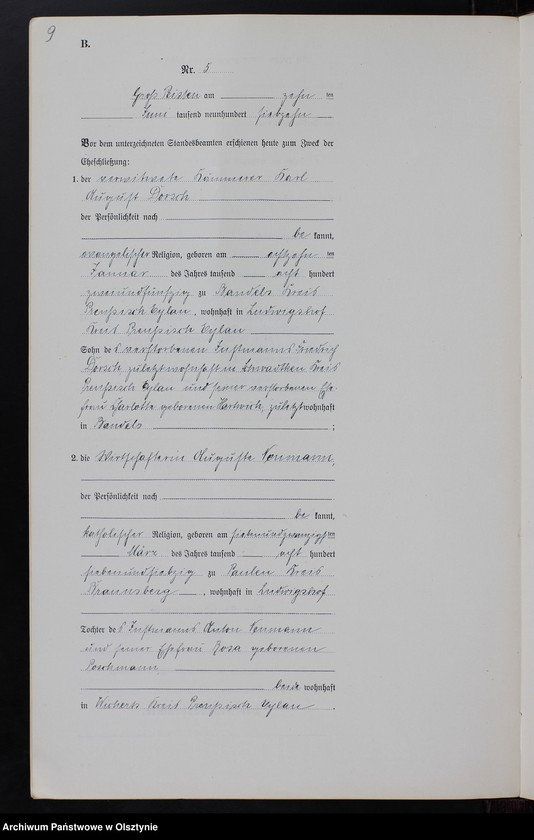 9
B.
Nr. 5
Groß Peisten am zehn ten
Juni tausend neunhundert siebzehn
Vor dem unterzeichneten Standesbeamten erschienen heute zum Zweck der
Eheschließung:
1. der verwitwete Kämmerer Karl
August Dorsch
der Persönlichkeit nach
be kannt,
evangelischer Religion, geboren am achtzehn ten
Januar des Jahres tausend acht hundert
zweiundfünfzig zu Bandels Kreis
Preußisch Eylau, wohnhaft in Ludwigshof
Kreis Preußisch Eylau
Sohn des verstorbenen Instmanns Friedrich
Dorsch zuletzt wohnhaft in Kreis
Preußisch Eylau und seiner verstorbenen Ehe
frau Charlotte geborenen Hartwich, zuletzt wohnhaft
in Bandels ;
2. die Wirtschafterin Auguste
der Persönlichkeit nach
be kannt,
katholischer Religion, geboren am siebenundzwanzigsten
März des Jahres tausend acht hundert
siebenundsiebzig zu Paulen Kreis
Braunsberg, wohnhaft in Ludwigshof
Tochter des Instmanns Anton
und seiner Ehefrau Rosa geborenen
Poschmann
beide wohnhaft
in Kreis Preußisch Eylau .
Archiwum Państwowe w Olsztynie